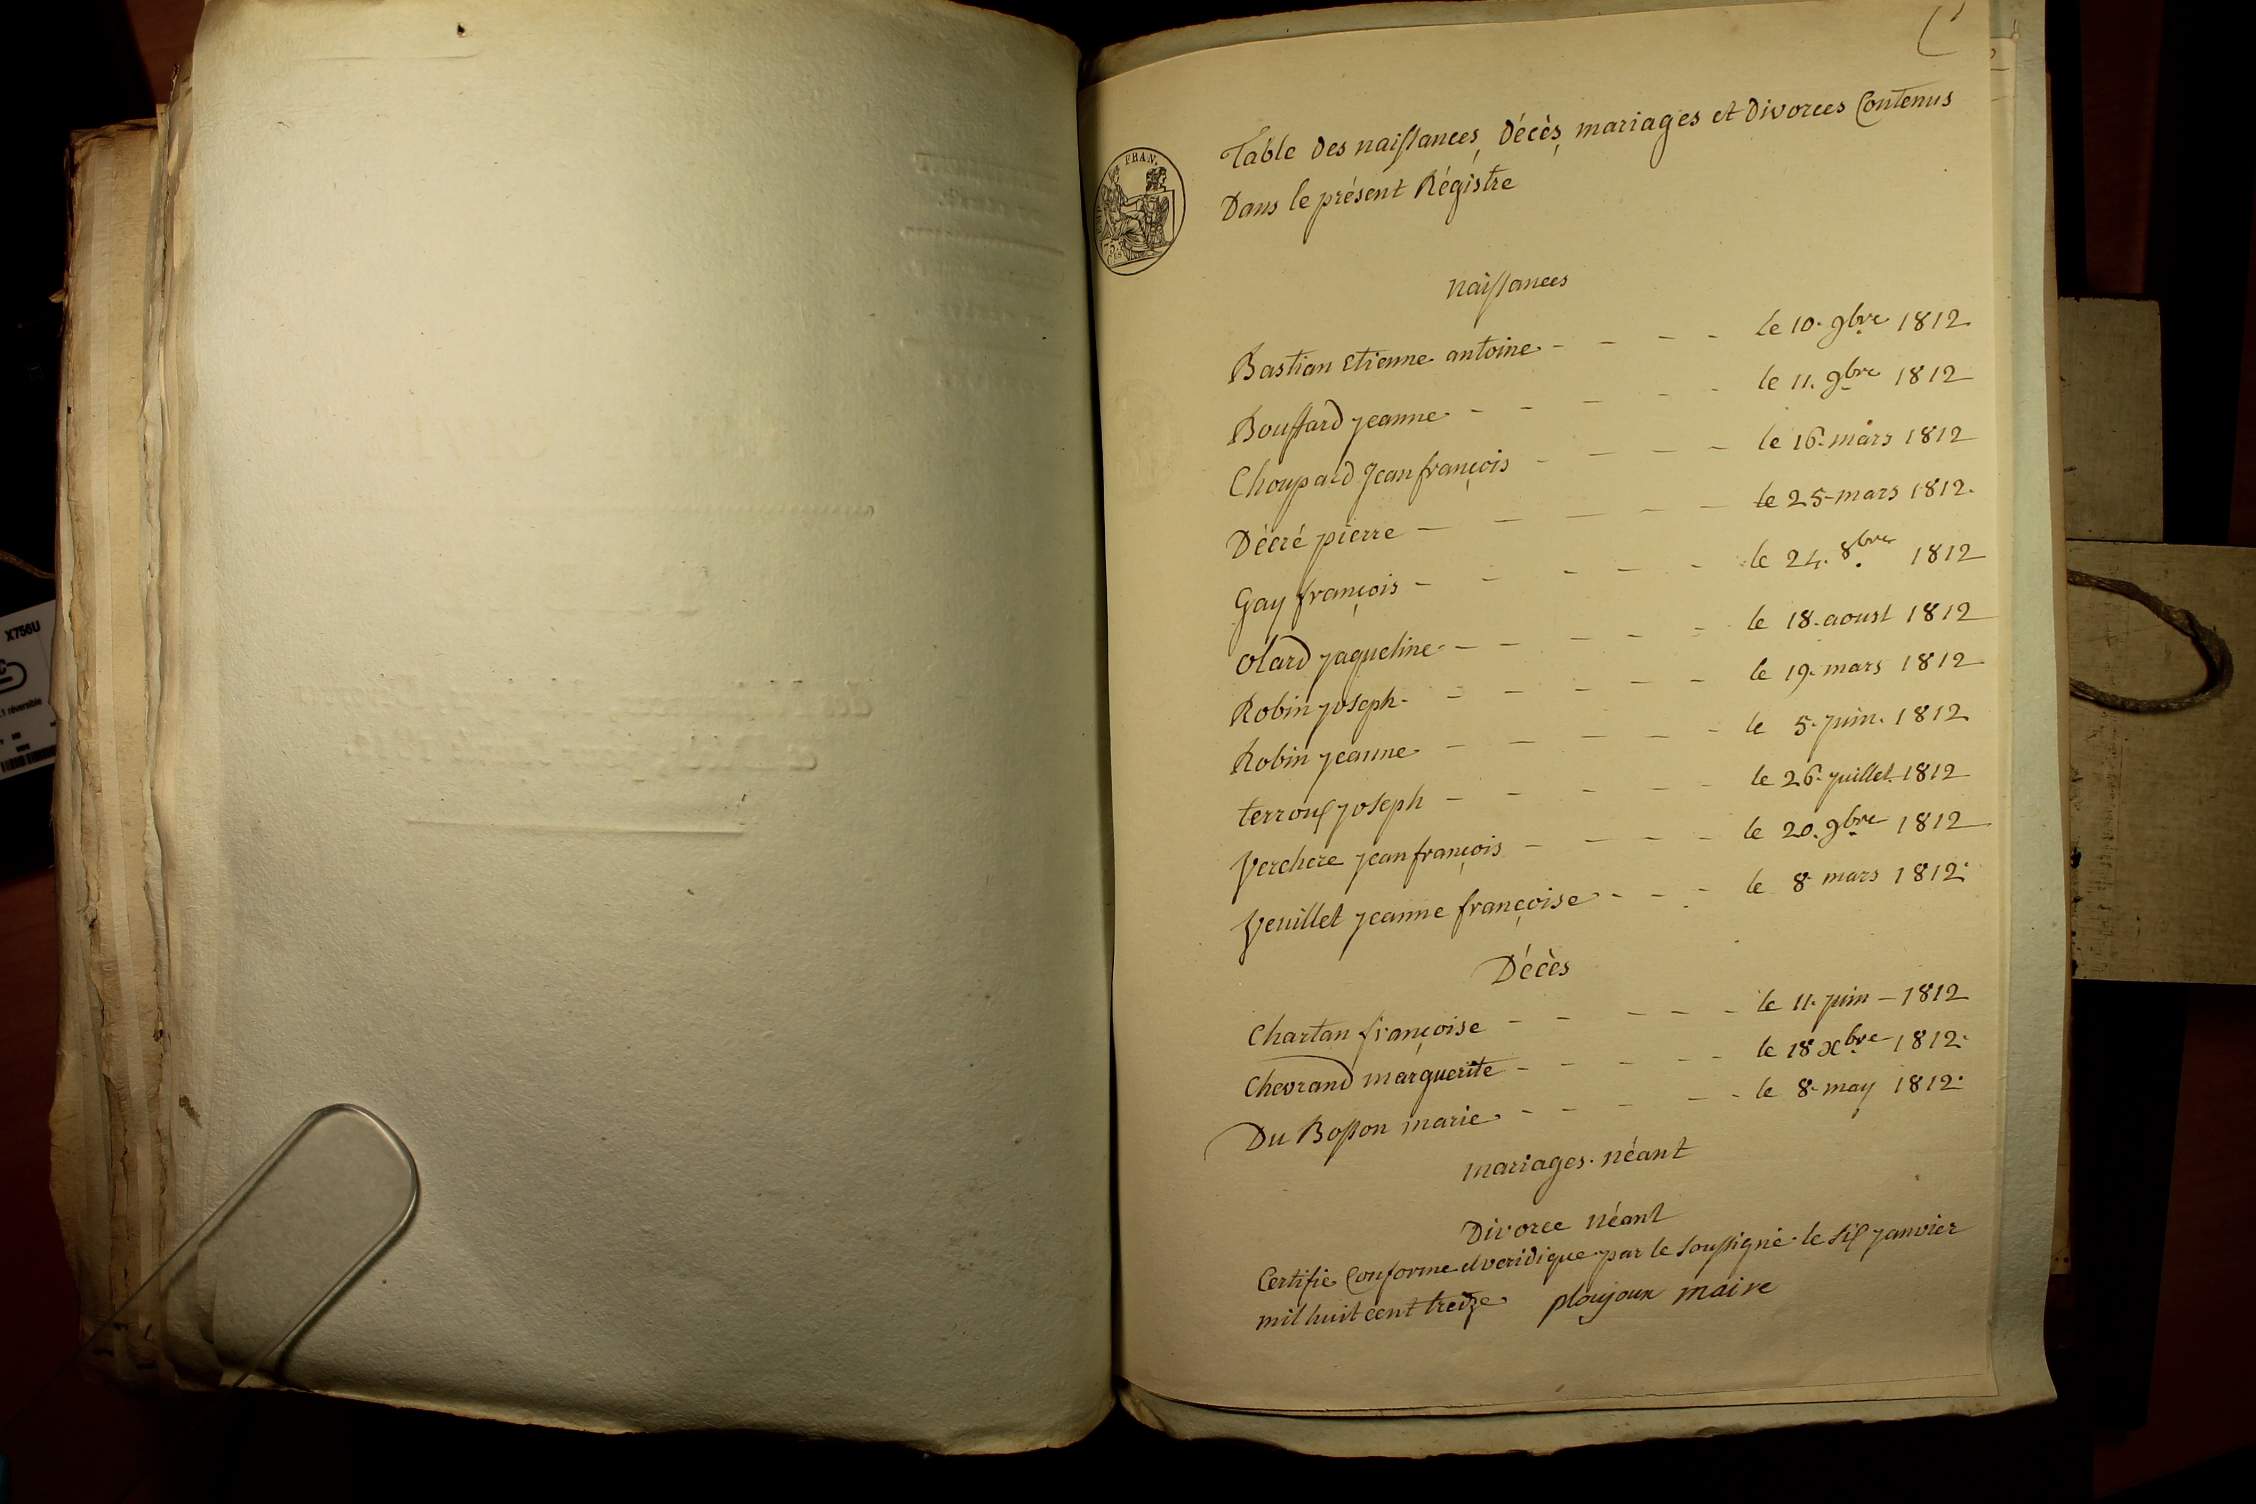 X756U
1 réversible
FRAN.
75
Table Des naissances, Décès, mariages et Divorces Contenus
Dans le présent Régistre
naissances
Bastian Etienne antoine - - - - le 10. 9bre 1812
Bouffard jeanne - - - - - le 11. 9bre 1812
Choupard Jean françois - - - - le 16. mars 1812
Décré pierre - - - - - le 25 mars 1812.
Gay françois - - - - - le 24. 8bre 1812
Olard jaqueline - - - - - le 18. aoust 1812
Robin joseph - - - - - - le 19. mars 1812
Robin jeanne - - - - - - le 5. juin. 1812
terroux joseph - - - - - le 26. juillet 1812
Verchere jean françois - - - - le 20. 9bre 1812
Veuillet jeanne françoise - - - le 8 mars 1812.
Décès
Chartan françoise - - - - - le 11. juin - 1812
Chevrand marguerite - - - - - le 18 xbre 1812.
Du Bosson marie - - - - - le 8. may 1812.
mariages. néant
Divorce néant
Certifie Conforme et veridique par le soussigné le six janvier
mil huit cent treize ploujoux maire